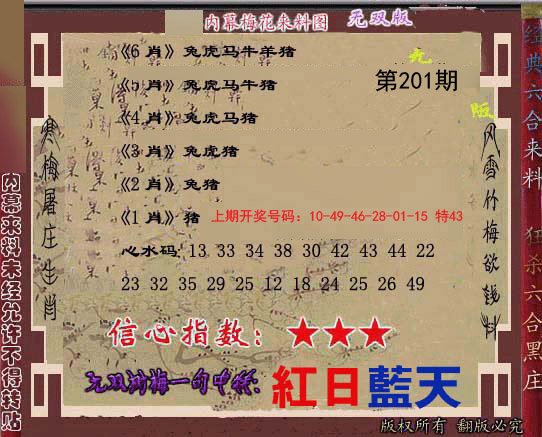 内幕梅花来料图 无双版
《6 肖》兔虎马牛羊猪
《5 肖》兔虎马牛猪
第201期
《4 肖》兔虎马猪
《3 肖》兔虎猪
《2 肖》兔猪
《1 肖》猪 上期开奖号码：10-49-46-28-01-15 特43
心水码: 13 33 34 38 30 42 43 44 22
23 32 35 29 25 12 18 24 25 26 49
信心指数: ★★★
一句中特: 紅日藍天
寒梅屠庄生肖
风雪竹梅欲钱料
内幕来料未经允许不得转贴
经典六合来料 狂杀六合黑庄
版权所有 翻版必究